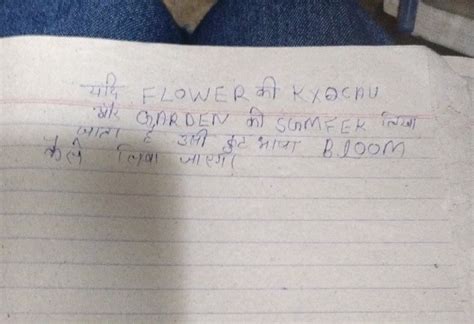 यदि FLOWER की KYOCAU
और GARDEN की SGMFEK लिखा
जाता है उसी कुट भाषा BLOOM
कैसे लिखा जाएगा।